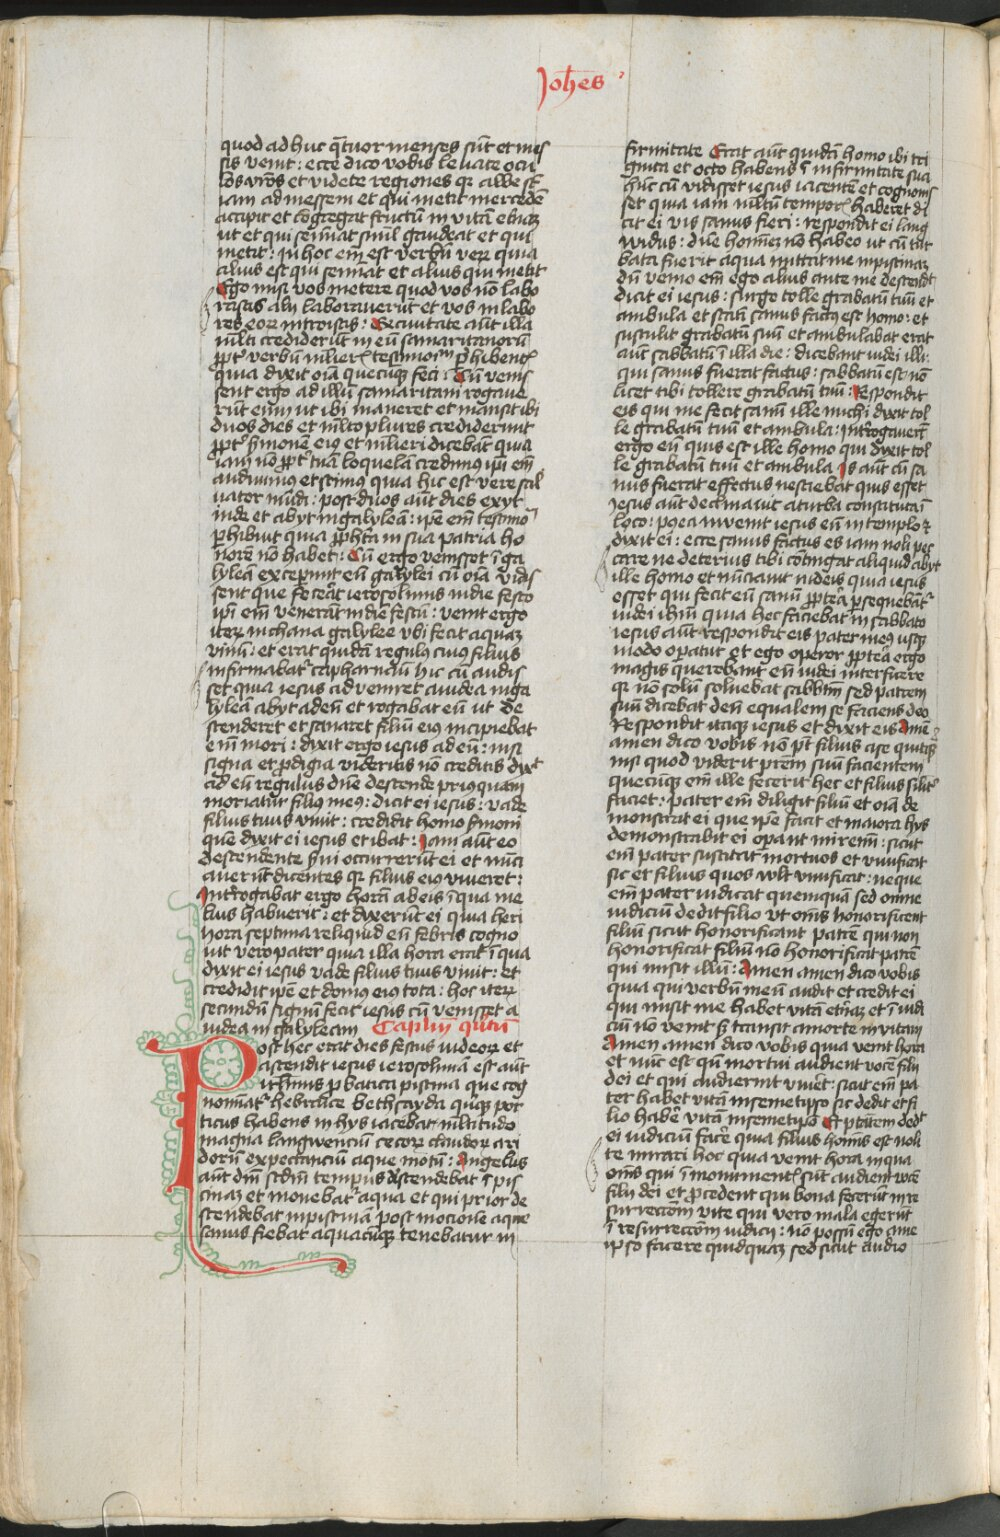 Joh̅es
quod adhuc q̅tuor menses su̅t et mes
sis venit : ecce dico vobis leuate ocu
los vr̅os et videte regiones qr̅ albe su̅t
iam ad messem et qui metit mercede̅
accipit et co̅gregat fructu̅ in vita̅ eterna̅
ut et qui semi̅at simul gaudeat et qui
metit : in hoc em̅ est verbu̅ veru̅ quia
alius est qui semi̅at et alius qui metit
Ego misi vos metere quod vos no̅ labo
rastis alij laboraveru̅t et vos in labo
res eoru̅ introistis : Ex civitate aut̅ illa
multi crediderut̅ in eu̅ samaritanoru̅
ppt̅ verbu̅ mulier̅ testimoniu̅ phibent̅
quia dixit o̅ia quecu̅q̅ feci : Cu̅ venis
sent ergo ad illu̅ samaritani rogave
ru̅t eum ut ibi maneret et mansit ibi
duos dies et multo plures crediderunt
ppt̅ s̅mone̅ eius et mulieri diceba̅t quia
iam no̅ ppt̅ tua̅ loquela̅ credimus ipi̅ em̅
audiuimus et scimus quia hic est vere sal
uator mu̅di : post duos aut̅ dies exijt
inde et abijt in galylea̅ : ipe̅ em̅ testimo̅
phibuit quia ppheta in sua patria ho
nore̅ no̅ habet : Cu̅ ergo venisset i̅ ga
lylea̅ exceperunt eu̅ galylei cu̅ o̅ia vidis
sent que fecerat ierosolimis in die festo
ipi̅ em̅ venera̅t in die̅ festu̅ : venit ergo
iteru̅ in chana galylee vbi fecit aqua̅
vinu̅ : et erat quida̅ regulus cuius filius
infirmabat̅ capharnau̅ hic cu̅ audis
set quia iesus adveniret a iudea in ga
lylea̅ abijt ad eu̅ et rogabat eu̅ ut de
scenderet et sanaret filiu̅ eius incipiebat
em̅ mori : dixit ergo iesus ad eu̅ : nisi
signa et prodigia videritis no̅ creditis dixit
ad eu̅ regulus dn̅e descende priusquam
moriatur filius meus : dicit ei iesus : vade
filius tuus viuit : credidit homo s̅moni
que̅ dixit ei iesus et ibat : Iam aut̅ eo
descendente s̅ui occurreru̅t ei et nu̅ci
averu̅t dicentes qr̅ filius eius viueret :
Introgabat ergo hora̅ ab eis i̅ qua me
lius habuerit : et dixeru̅t ei quia heri
hora septima reliquid eu̅ febris cogno
uit vero pater quia illa hora erat i̅ qua
dixit ei iesus vade filius tuus viuit : et
credidit ipe̅ et domus eius tota : hoc iteru̅
secundu̅ signu̅ fecit iesus cu̅ venisset a
iudea in galyleam Caplm̅ q̅ntu̅
Post hec erat dies festus iudeoru̅ et
ascendit iesus ierosolima̅ est aut̅
ierosolimis pbatica piscina que cog
nomi̅at̅ hebraice bethsayda qui̅q̅ por
ticus habens in hijs iacebat multitudo
magna langwenciu̅ cecoru̅ claudoru̅ ari
doru̅ expectanciu̅ aque motu̅ : Angelus
aut̅ dn̅i scdm̅ tempus descendebat i̅ pis
cina̅ et mouebat̅ aqua et qui prior de
scendebat in piscina̅ post mocione̅ aque
sanus fiebat a quacu̅q̅ tenebatur in
firmitate Erat aut̅ quida̅ homo ibi tri
ginta et octo habens i̅ infirmitate sua
hu̅c cu̅ vidisset iesus iacente̅ et cognouis
set quia iam multu̅ tempor̅ haberet di
cit ei vis sanus fieri : respondit ei lang
widus : dn̅e homine̅ no̅ habeo ut cu̅ tur
bata fuerit aqua mittat me in piscina̅
du̅ venio em̅ ego alius ante me descendit
dicit ei iesus : surge tolle grabatu̅ tuu̅ et
ambula et stati̅ sanus factus est homo : et
sustulit grabatu̅ suu̅ et ambulabat erat
aut̅ sabbatu̅ i̅ illa die : dicebant iudei illi
qui sanus fuerat factus : sabbatu̅ est no̅
licet tibi tollere grabatu̅ tuu̅ : Respondit
eis qui me fecit sanu̅ ille michi dixit tol
le grabatu̅ tuu̅ et ambula : introgaveru̅t
ergo eu̅ quis est ille homo qui dixit tol
le grabatu̅ tuu̅ et ambula Is aut̅ cu̅ sa
nus fuerat effectus nesciebat quis esset
Iesus aut̅ declinauit a turba constituta i̅
loco : postea invenit iesus eu̅ in templo et
dixit ei : ecce sanus factus es iam noli pec
care ne deterius tibi co̅tingat aliquid abijt
ille homo et nu̅ciauit iudeis quia iesus
esset qui fecit eu̅ sanu̅ ppterea p̅sequeba̅t̅
iudei ihm̅ quia hec faciebat in sabbato
iesus aut̅ respondit eis pater meus usq̅
modo opatur et ego operor ppterea ergo
magis querebant eu̅ iudei interficere
qr̅ no̅ solu̅ soluebat sabbm̅ sed patrem
suu̅ dicebat deu̅ equalem se faciens deo
Respondit itaq̅ iesus et dixit eis Ame̅
amen dico vobis no̅ pt̅ filius a se quicq̅
nisi quod viderit prem̅ suu̅ facientem
quecu̅q̅ em̅ ille fecerit hec et filius silit̅
faciet : pater em̅ diligit filiu̅ et o̅ia de
monstrat ei que ipe̅ facit et maiora hijs
demonstrabit ei opa ut mirem̅ : sicut
em̅ pater suscitat mortuos et viuificat
sic et filius quos wlt viuificat : neque
em̅ pater iudicat quemqua̅ sed omne
iudiciu̅ dedit filio vt om̅s honorificent
filiu̅ sicut honorificant patre̅ qui non
honorificat filiu̅ no̅ honorificat patre̅
qui misit illu̅ : Amen amen dico vobis
quia qui verbu̅ meu̅ audit et credit ei
qui misit me habet vita̅ eterna̅ et i̅ iudi
ciu̅ no̅ venit s̅ transit a morte in vitam
Amen amen dico vobis quia venit hora
et nu̅c est qn̅ mortui audient voce̅ filij
dei et qui audierint viue̅t : sicut em̅ pa
ter habet vita̅ in semetipso sic dedit et fi
lio haber̅ vita̅ in semetipso Et ptatem dedit
ei iudiciu̅ facer̅ quia filius hom̅is est noli
te mirari hoc quia venit hora in qua
om̅s qui i̅ monument̅ su̅t audient voce̅
filij dei et procedent qui bona feceru̅t in re
surrectom̅ vite qui vero mala egeru̅t
i̅ resurrectom̅ iudicij : no̅ possu̅ ego a me
ipso facere quidqua̅ sed sicut audio